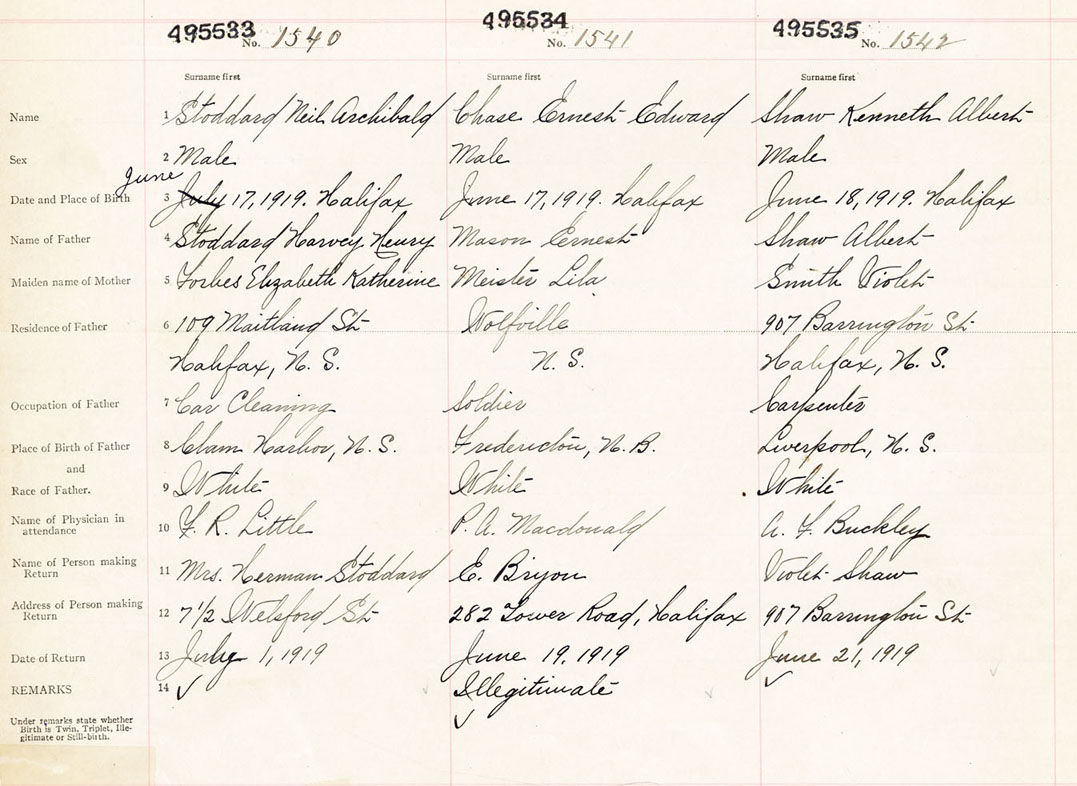 495533 No. 1540 495534 No. 1541 495535 No. 1542
Surname first Surname first Surname first
Name 1 Stoddard Neil Archibald Chase Ernest Edward Shaw Kenneth Albert
Sex 2 Male Male Male
June
Date and Place of Birth 3 July 17, 1919. Halifax June 17, 1919. Halifax June 18, 1919. Halifax
Name of Father 4 Stoddard Harvey Henry Mason Ernest Shaw Albert
Maiden name of Mother 5 Forbes Elizabeth Katherine Meister Lila Smith Violet
Residence of Father 6 109 Maitland St Wolfville 907 Barrington St
Halifax, N. S. N. S. Halifax, N. S.
Occupation of Father 7 Car Cleaning Soldier Carpenter
Place of Birth of Father 8 Clam Harbor, N. S. Fredericton, N. B. Liverpool, N. S.
and
Race of Father. 9 White White White
Name of Physician in attendance 10 F. R. Little P. A. Macdonald A. F. Buckley
Name of Person making Return 11 Mrs. Herman Stoddard E. Bryon Violet Shaw
Address of Person making Return 12 7 1/2 Welsford St 282 Tower Road, Halifax 907 Barrington St
Date of Return 13 July 1, 1919 June 19, 1919 June 21, 1919
REMARKS 14 ✓ Illegitimate ✓
✓
Under remarks state whether
Birth is Twin, Triplet, Ille-
gitimate or Still-birth.